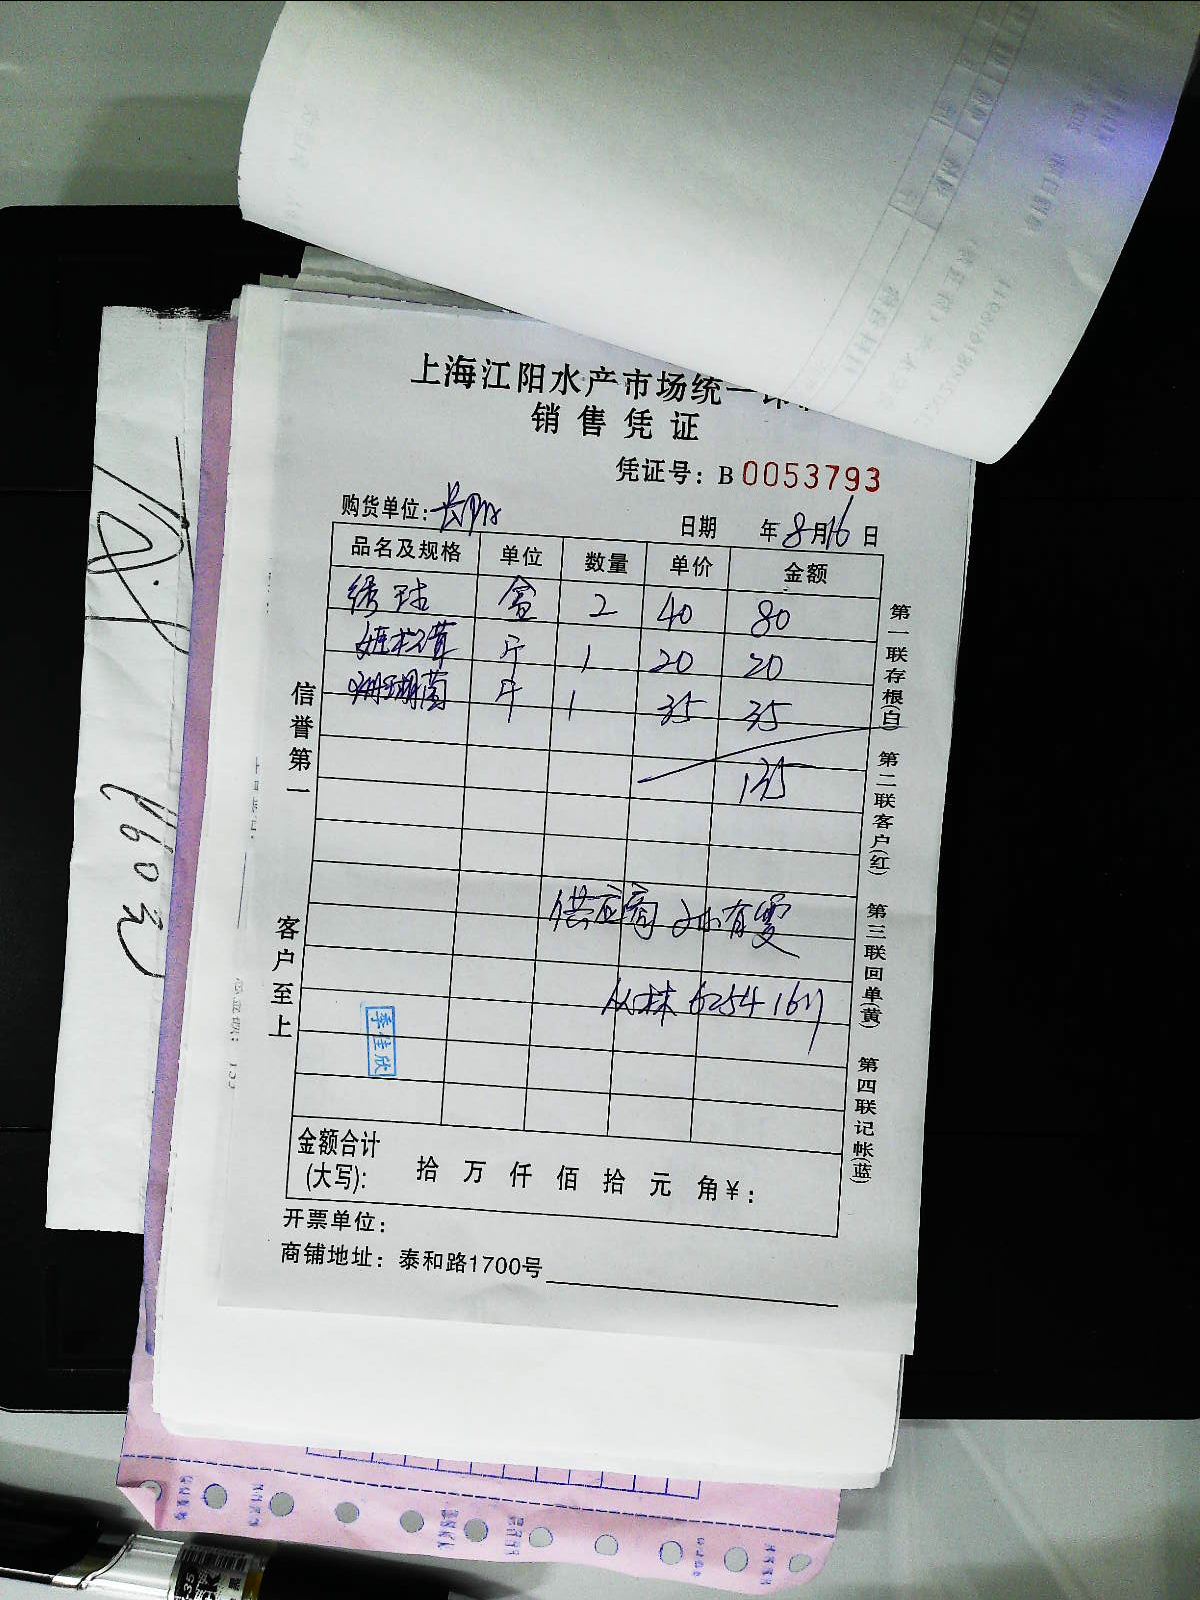 上海江阳水产市场统一
销售凭证
凭证号：B 0053793
购货单位：
日期 年8月16日
品名及规格 单位 数量 单价 金额
绣球 盒 2 40 80
姬松茸 斤 1 20 20
珊瑚菌 斤 1 35 35
135
供应商 孙有雯
丛林 6254 1617
李佳欣
金额合计
(大写)： 拾 万 仟 佰 拾 元 角￥：
开票单位：
商铺地址：泰和路1700号
信誉第一 客户至上
第一联存根(白) 第二联客户(红) 第三联回单(黄) 第四联记帐(蓝)